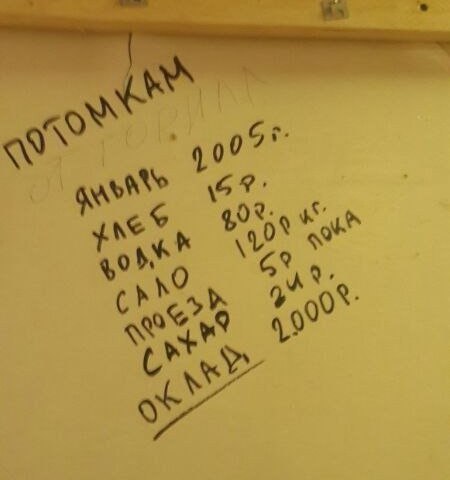 ПОТОМКАМ
ОТ ГОРИЛЛ
ЯНВАРЬ 2005г.
ХЛЕБ 15р.
ВОДКА 80р.
САЛО 120р кг.
ПРОЕЗД 5р ПОКА
САХАР 24р.
ОКЛАД 2.000р.